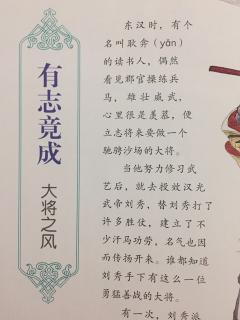 有志竟成
大将之风
东汉时，有个
名叫耿弇（yǎn）
的读书人，偶然
看见郡官操练兵
马，雄壮威武，
心里很是羡慕，便
立志将来要做一个
驰骋沙场的大将。
当他努力修习武
艺后，就去投效汉光
武帝刘秀，替刘秀打了
许多胜仗，建立了不
少汗马功劳，名气也因
而传扬开来。谁都知道
刘秀手下有这么一位
勇猛善战的大将。
有一次，刘秀派